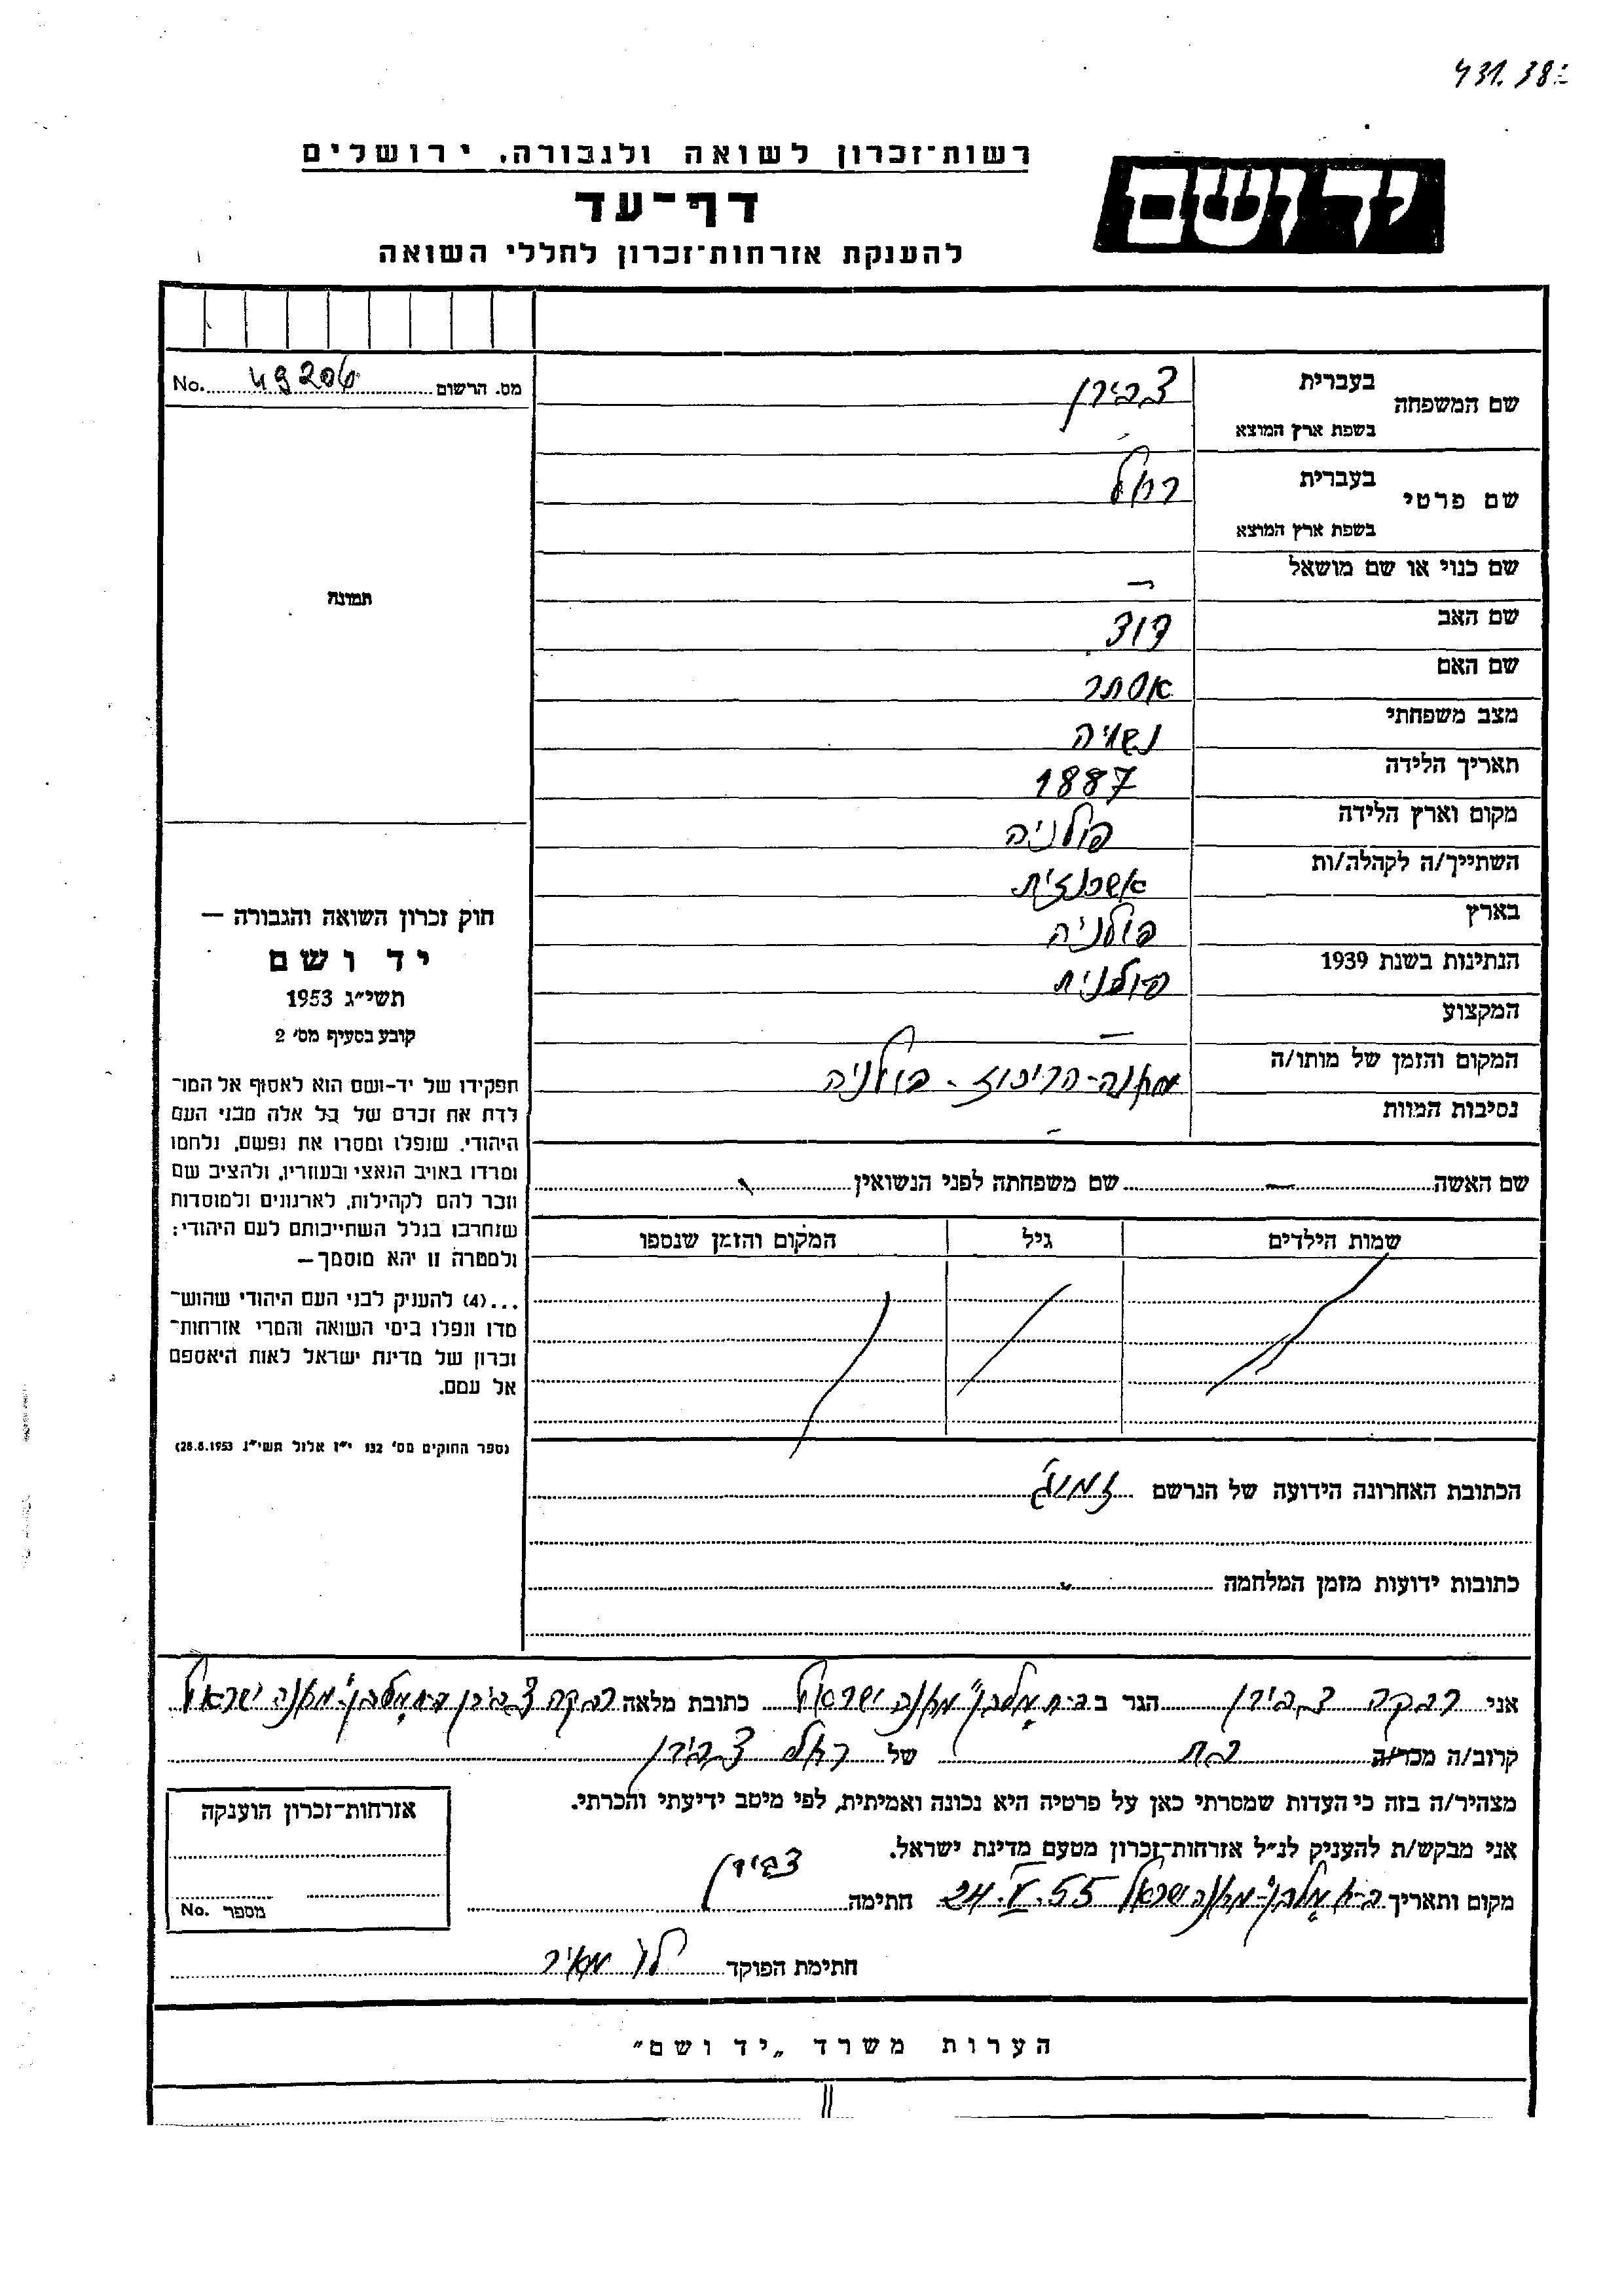 431.38
רשות־זכרון לשואה ולגבורה, ירושלים
יד ושם
דף־עד
להענקת אזרחות־זכרון לחללי השואה
מס. הרשום 49206 No.
שם המשפחה
בעברית
צבירן
בשפת ארץ המוצא
שם פרטי
בעברית
רחל
בשפת ארץ המוצא
שם כנוי או שם מושאל —
שם האב דוד
שם האם אסתר
מצב משפחתי נשואה
תאריך הלידה 1887
מקום וארץ הלידה פולניה
השתייך/ה לקהלה/ות אשכנזית
בארץ פולניה
הנתינות בשנת 1939 פולנית
המקצוע —
המקום והזמן של מותו/ה מחנה-הריכוז - פולניה
נסיבות המוות —
תמונה
חוק זכרון השואה והגבורה —
יד ושם
תשי״ג 1953
קובע בסעיף מס׳ 2
תפקידו של יד-ושם הוא לאסוף אל המו־
לדת את זכרם של כל אלה מבני העם
היהודי, שנפלו ומסרו את נפשם, נלחמו
ומרדו באויב הנאצי ובעוזריו, ולהציב שם
וזכר להם לקהילות, לארגונים ולמוסדות
שנחרבו בגלל השתייכותם לעם היהודי;
ולמטרה זו יהא מוסמך—
...(4) להעניק לבני העם היהודי שהוש־
מדו ונפלו בימי השואה והמרי אזרחות־
זכרון של מדינת ישראל לאות היאספם
אל עמם.
(ספר החוקים מס׳ 132 י״ז אלול תשי״ג 28.8.1953)
שם האשה — שם משפחתה לפני הנשואין
שמות הילדים גיל המקום והזמן שנספו
הכתובת האחרונה הידועה של הנרשם
כתובות ידועות מזמן המלחמה
אני רבקה צבירן הגר ב ב״ח מלבן מחנה ישראל כתובת מלאה רבקה צבירן ב״ח מלבן מחנה ישראל
קרוב/ה מכר/ה בת של רחל צבירן
מצהיר/ה בזה כי העדות שמסרתי כאן על פרטיה היא נכונה ואמיתית, לפי מיטב ידיעתי והכרתי.
אני מבקש/ת להעניק לנ״ל אזרחות־זכרון מטעם מדינת ישראל.
מקום ותאריך ב״ח מלבן מחנה ישראל 24.V.55 חתימה צבירן
חתימת הפוקד לוי מאיר
אזרחות־זכרון הוענקה
מספר No.
הערות משרד „יד ושם״